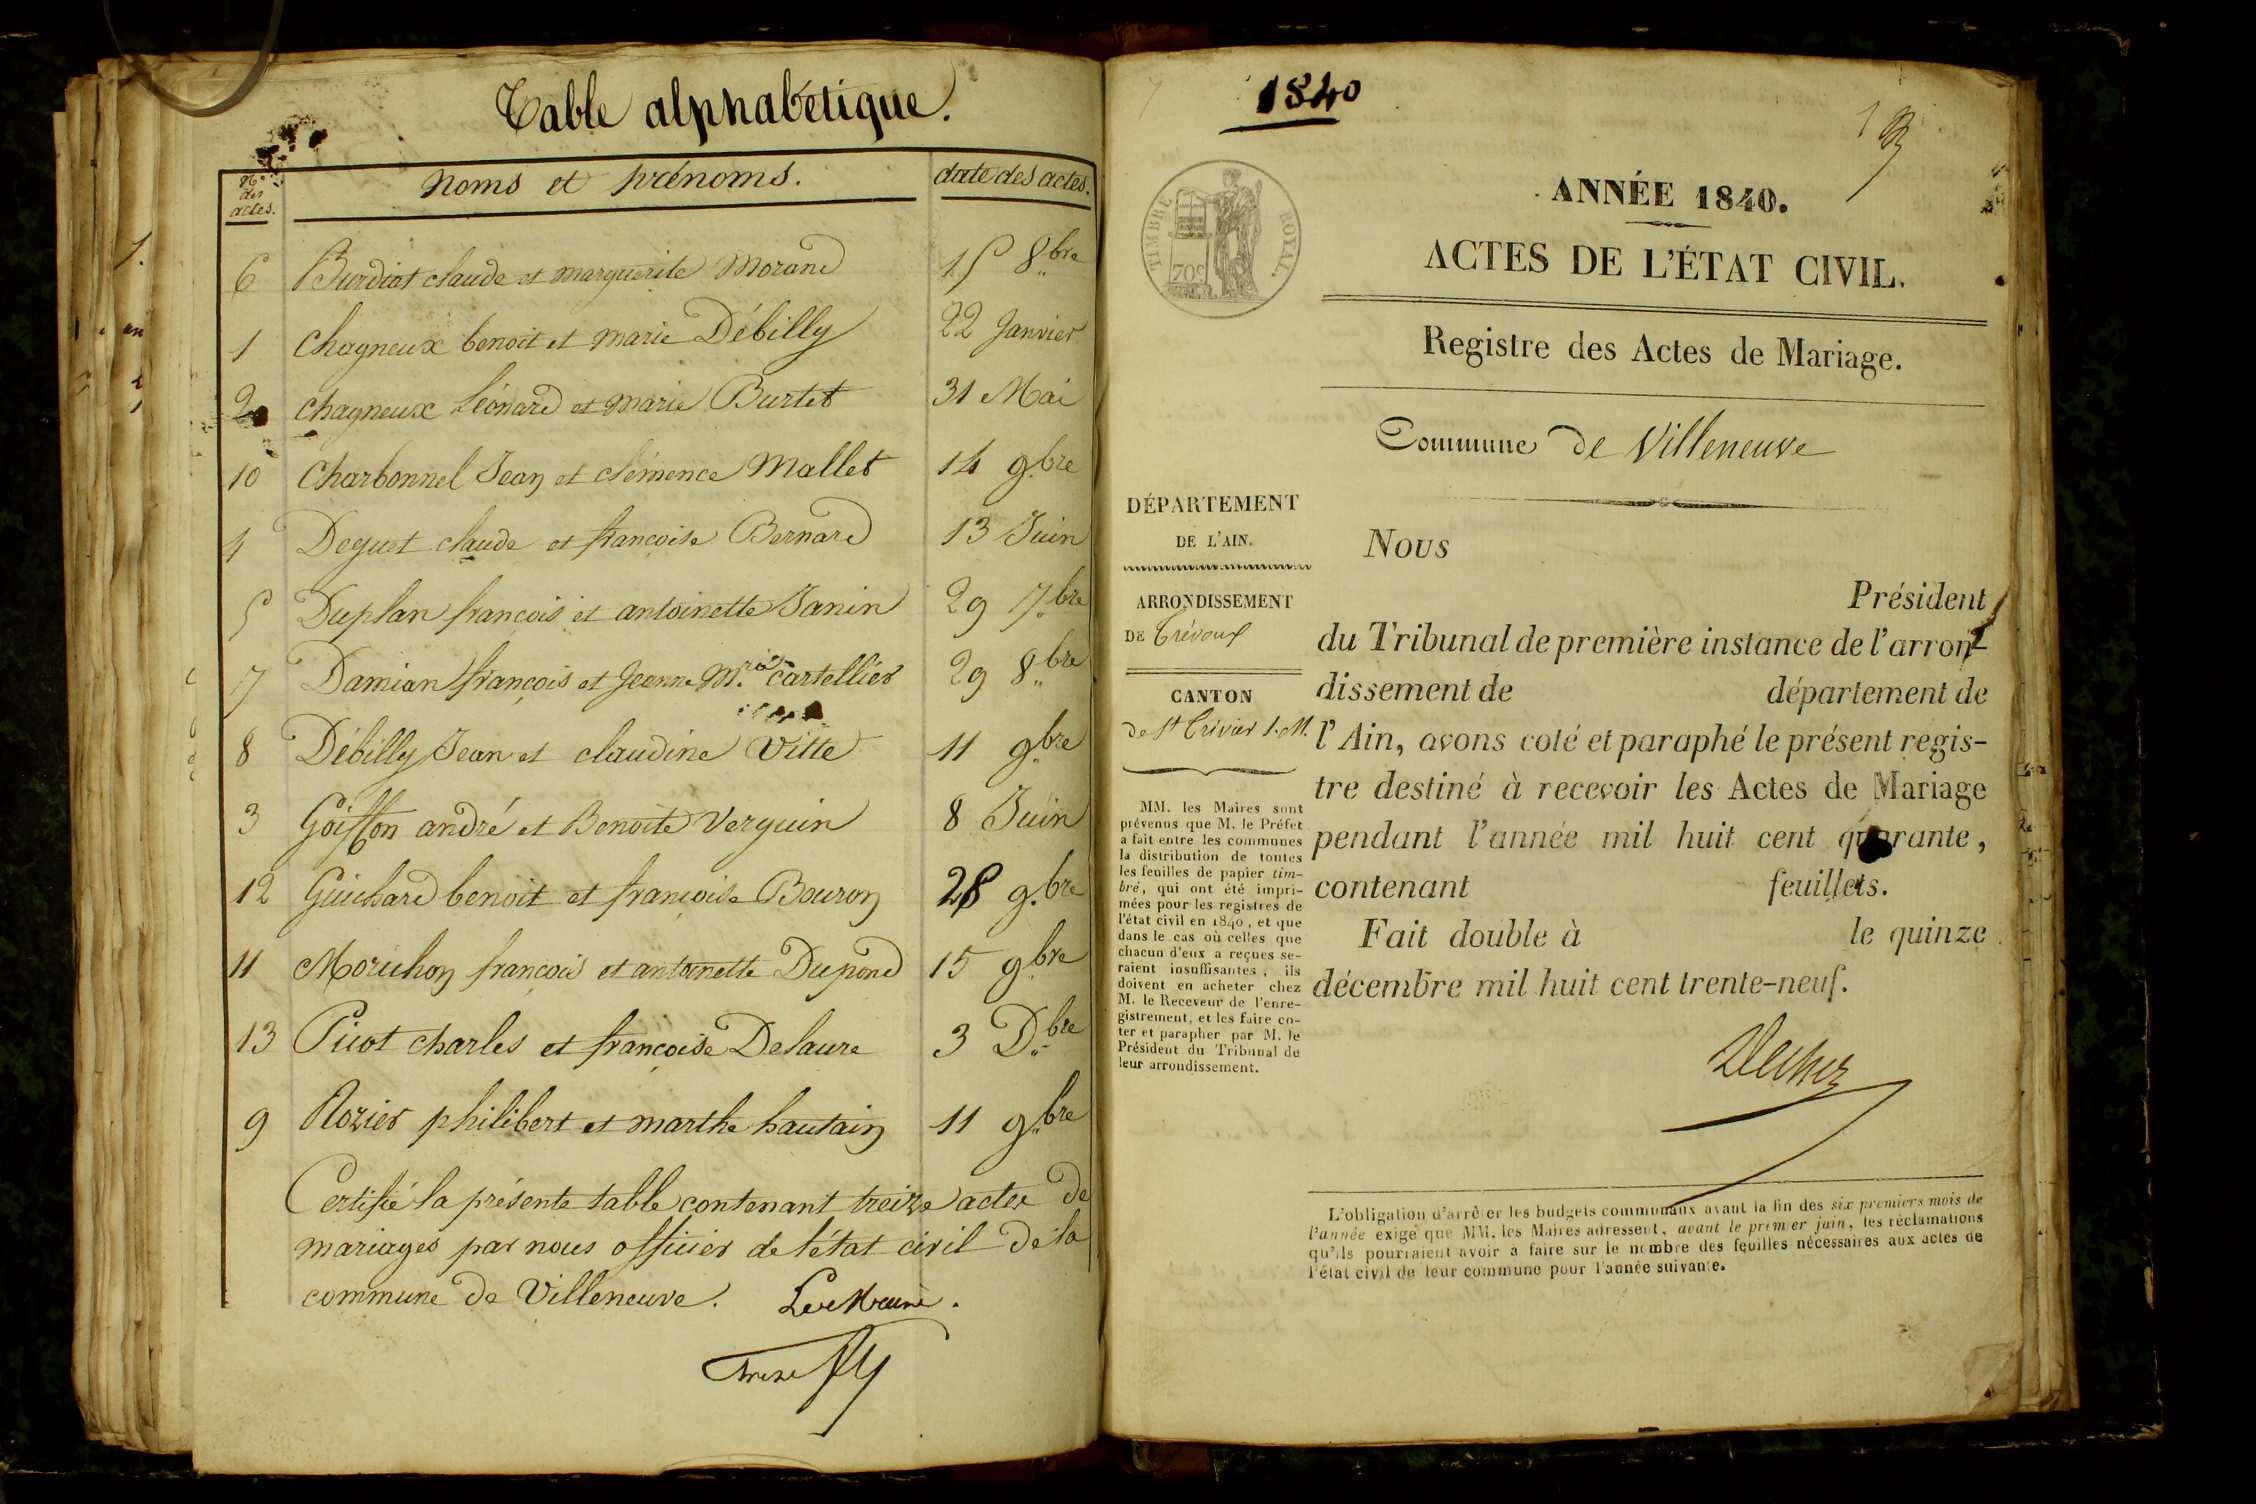 Table alphabétique.
Nos des actes. noms et prénoms. date des actes.
6 Burdiat claude et marguerite Morand 15 8.bre
1 Chagneux benoit et marie Débilly 22 Janvier
2 chagneux Léonard et marie Burtet 31 Mai
10 Charbonnel Jean et clémence Mallet 14 9.bre
4 Deguet claude et françoise Bernard 13 Juin
5 Duplan françois et antoinette Janin 29 7.bre
7 Damian françois et Jeanne M.rie cartellier 29 8.bre
8 Débilly Jean et claudine Vitte 11 9.bre
3 Goiffon andré et Benoite Verguin 8 Juin
12 Guichard benoit et françoise Bouron 28 9.bre
11 Morichon françois et antoinette Dupond 15 9.bre
13 Picot charles et françoise Delaure 3 D.bre
9 Rozier philibert et marthe hautain 11 9.bre
Certifié la présente table contenant treize actes de
mariages par nous officier de l'état civil de la
commune de Villeneuve. Le Maire.
1840
TIMBRE ROYAL.
70c
ANNÉE 1840.
ACTES DE L'ÉTAT CIVIL.
Registre des Actes de Mariage.
Commune de Villeneuve
DÉPARTEMENT
DE L'AIN.
ARRONDISSEMENT
DE Trévoux
CANTON
de St Trivier s. M.
MM. les Maires sont
prévenus que M. le Préfet
a fait entre les communes
la distribution de toutes
les feuilles de papier tim-
bré, qui ont été impri-
mées pour les registres de
l'état civil en 1840, et que
dans le cas où celles que
chacun d'eux a reçues se-
raient insuffisantes, ils
doivent en acheter chez
M. le Receveur de l'enre-
gistrement, et les faire co-
ter et parapher par M. le
Président du Tribunal de
leur arrondissement.
Nous
Président
du Tribunal de première instance de l'arron-
dissement de département de
l'Ain, avons coté et paraphé le présent regis-
tre destiné à recevoir les Actes de Mariage
pendant l'année mil huit cent quarante,
contenant feuillets.
Fait double à le quinze
décembre mil huit cent trente-neuf.
L'obligation d'arrêter les budgets communaux avant la fin des six premiers mois de
l'année exige que MM. les Maires adressent, avant le premier juin, les réclamations
qu'ils pourraient avoir à faire sur le nombre des feuilles nécessaires aux actes de
l'état civil de leur commune pour l'année suivante.